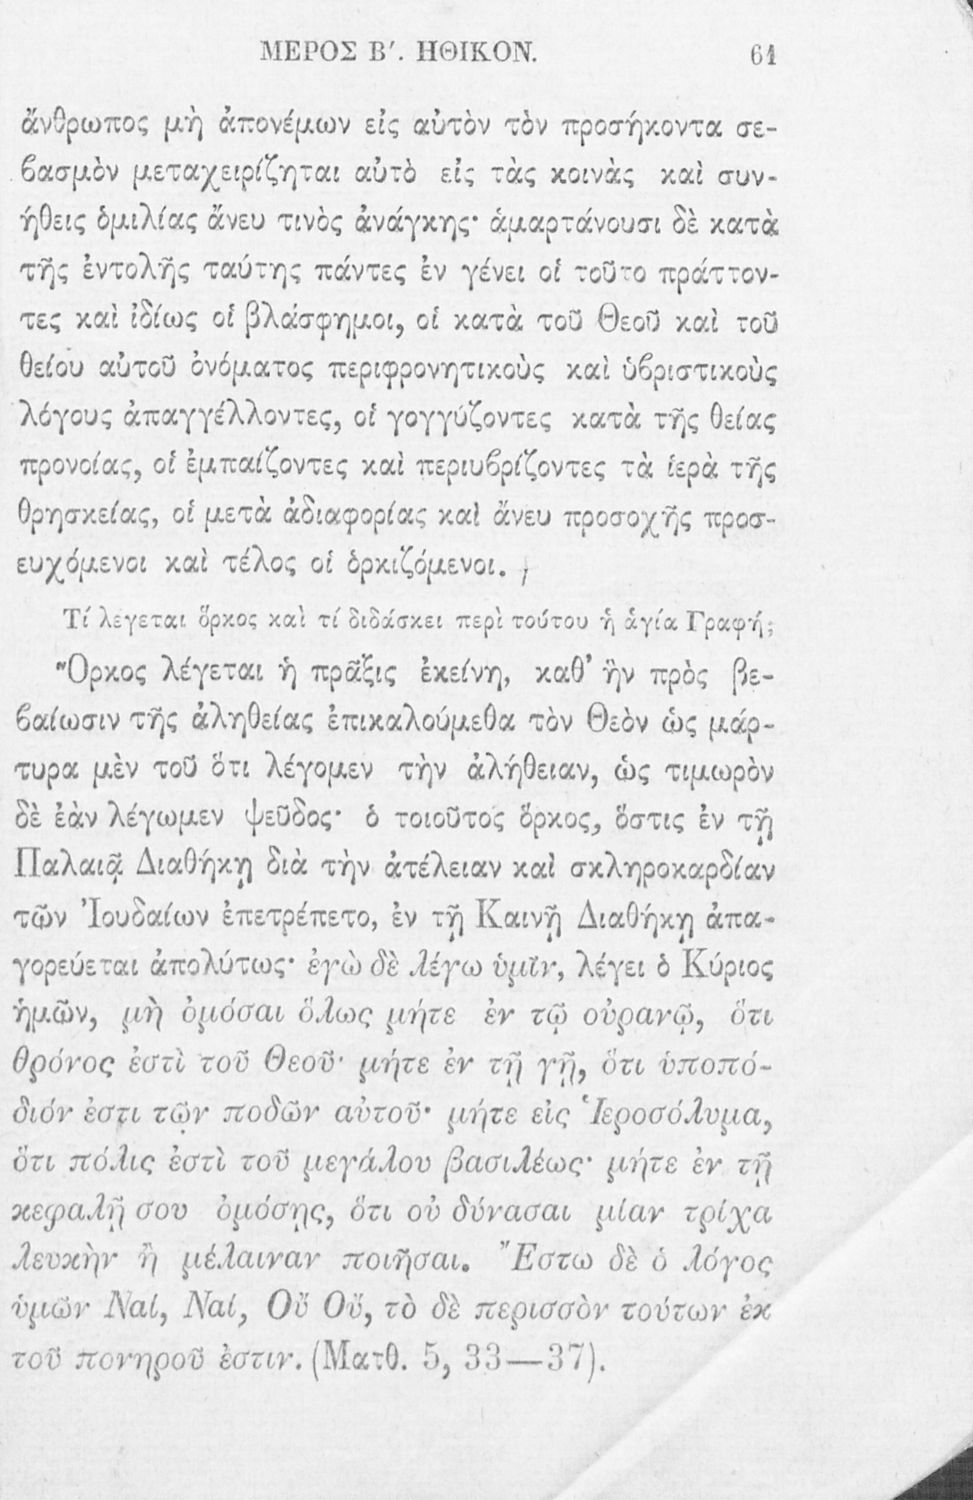 ΜΕΡΟΣ Β′. ΗΘΙΚΟΝ. 61
ἄνθρωπος μὴ ἀπονέμων εἰς αὐτὸν τὸν προσήκοντα σε-
βασμὸν μεταχειρίζηται αὐτὸ εἰς τὰς κοινὰς καὶ συν-
ήθεις ὁμιλίας ἄνευ τινὸς ἀνάγκης· ἁμαρτάνουσι δὲ κατὰ
τῆς ἐντολῆς ταύτης πάντες ἐν γένει οἱ τοῦτο πράττον-
τες καὶ ἰδίως οἱ βλάσφημοι, οἱ κατὰ τοῦ Θεοῦ καὶ τοῦ
θείου αὐτοῦ ὀνόματος περιφρονητικοὺς καὶ ὑβριστικοὺς
λόγους ἀπαγγέλλοντες, οἱ γογγύζοντες κατὰ τῆς θείας
προνοίας, οἱ ἐμπαίζοντες καὶ περιυβρίζοντες τὰ ἱερὰ τῆς
θρησκείας, οἱ μετὰ ἀδιαφορίας καὶ ἄνευ προσοχῆς προσ-
ευχόμενοι καὶ τέλος οἱ ὁρκιζόμενοι.
Τί λεγεται ὅρκος καὶ τί διδάσκει περὶ τούτου ἡ ἁγία Γραφή;
Ὅρκος λέγεται ἡ πρᾶξις ἐκείνη, καθ’ ἣν πρὸς βε-
βαίωσιν τῆς ἀληθείας ἐπικαλούμεθα τὸν Θεὸν ὡς μάρ-
τυρα μὲν τοῦ ὅτι λέγομεν τὴν ἀλήθειαν, ὡς τιμωρὸν
δὲ ἐὰν λέγωμεν ψεῦδος· ὁ τοιοῦτος ὅρκος, ὅστις ἐν τῇ
Παλαιᾷ Διαθήκῃ διὰ τὴν ἀτέλειαν καὶ σκληροκαρδίαν
τῶν Ἰουδαίων ἐπετρέπετο, ἐν τῇ Καινῇ Διαθήκῃ ἀπα-
γορεύεται ἀπολύτως· ἐγὼ δὲ λέγω ὑμῖν, λέγει ὁ Κύριος
ἡμῶν, μὴ ὀμόσαι ὅλως μήτε ἐν τῷ οὐρανῷ, ὅτι
θρόνος ἐστὶ τοῦ Θεοῦ· μήτε ἐν τῇ γῇ, ὅτι ὑποπό-
διόν ἐστι τῶν ποδῶν αὐτοῦ· μήτε εἰς Ἱεροσόλυμα,
ὅτι πόλις ἐστὶ τοῦ μεγάλου βασιλέως· μήτε ἐν τῇ
κεφαλῇ σου ὀμόσῃς, ὅτι οὐ δύνασαι μίαν τρίχα
λευκὴν ἢ μέλαιναν ποιῆσαι. Ἔστω δὲ ὁ λόγος
ὑμῶν Ναί, Ναί, Οὔ Οὔ, τὸ δὲ περισσὸν τούτων ἐκ
τοῦ πονηροῦ ἐστιν. (Ματθ. 5, 33—37).